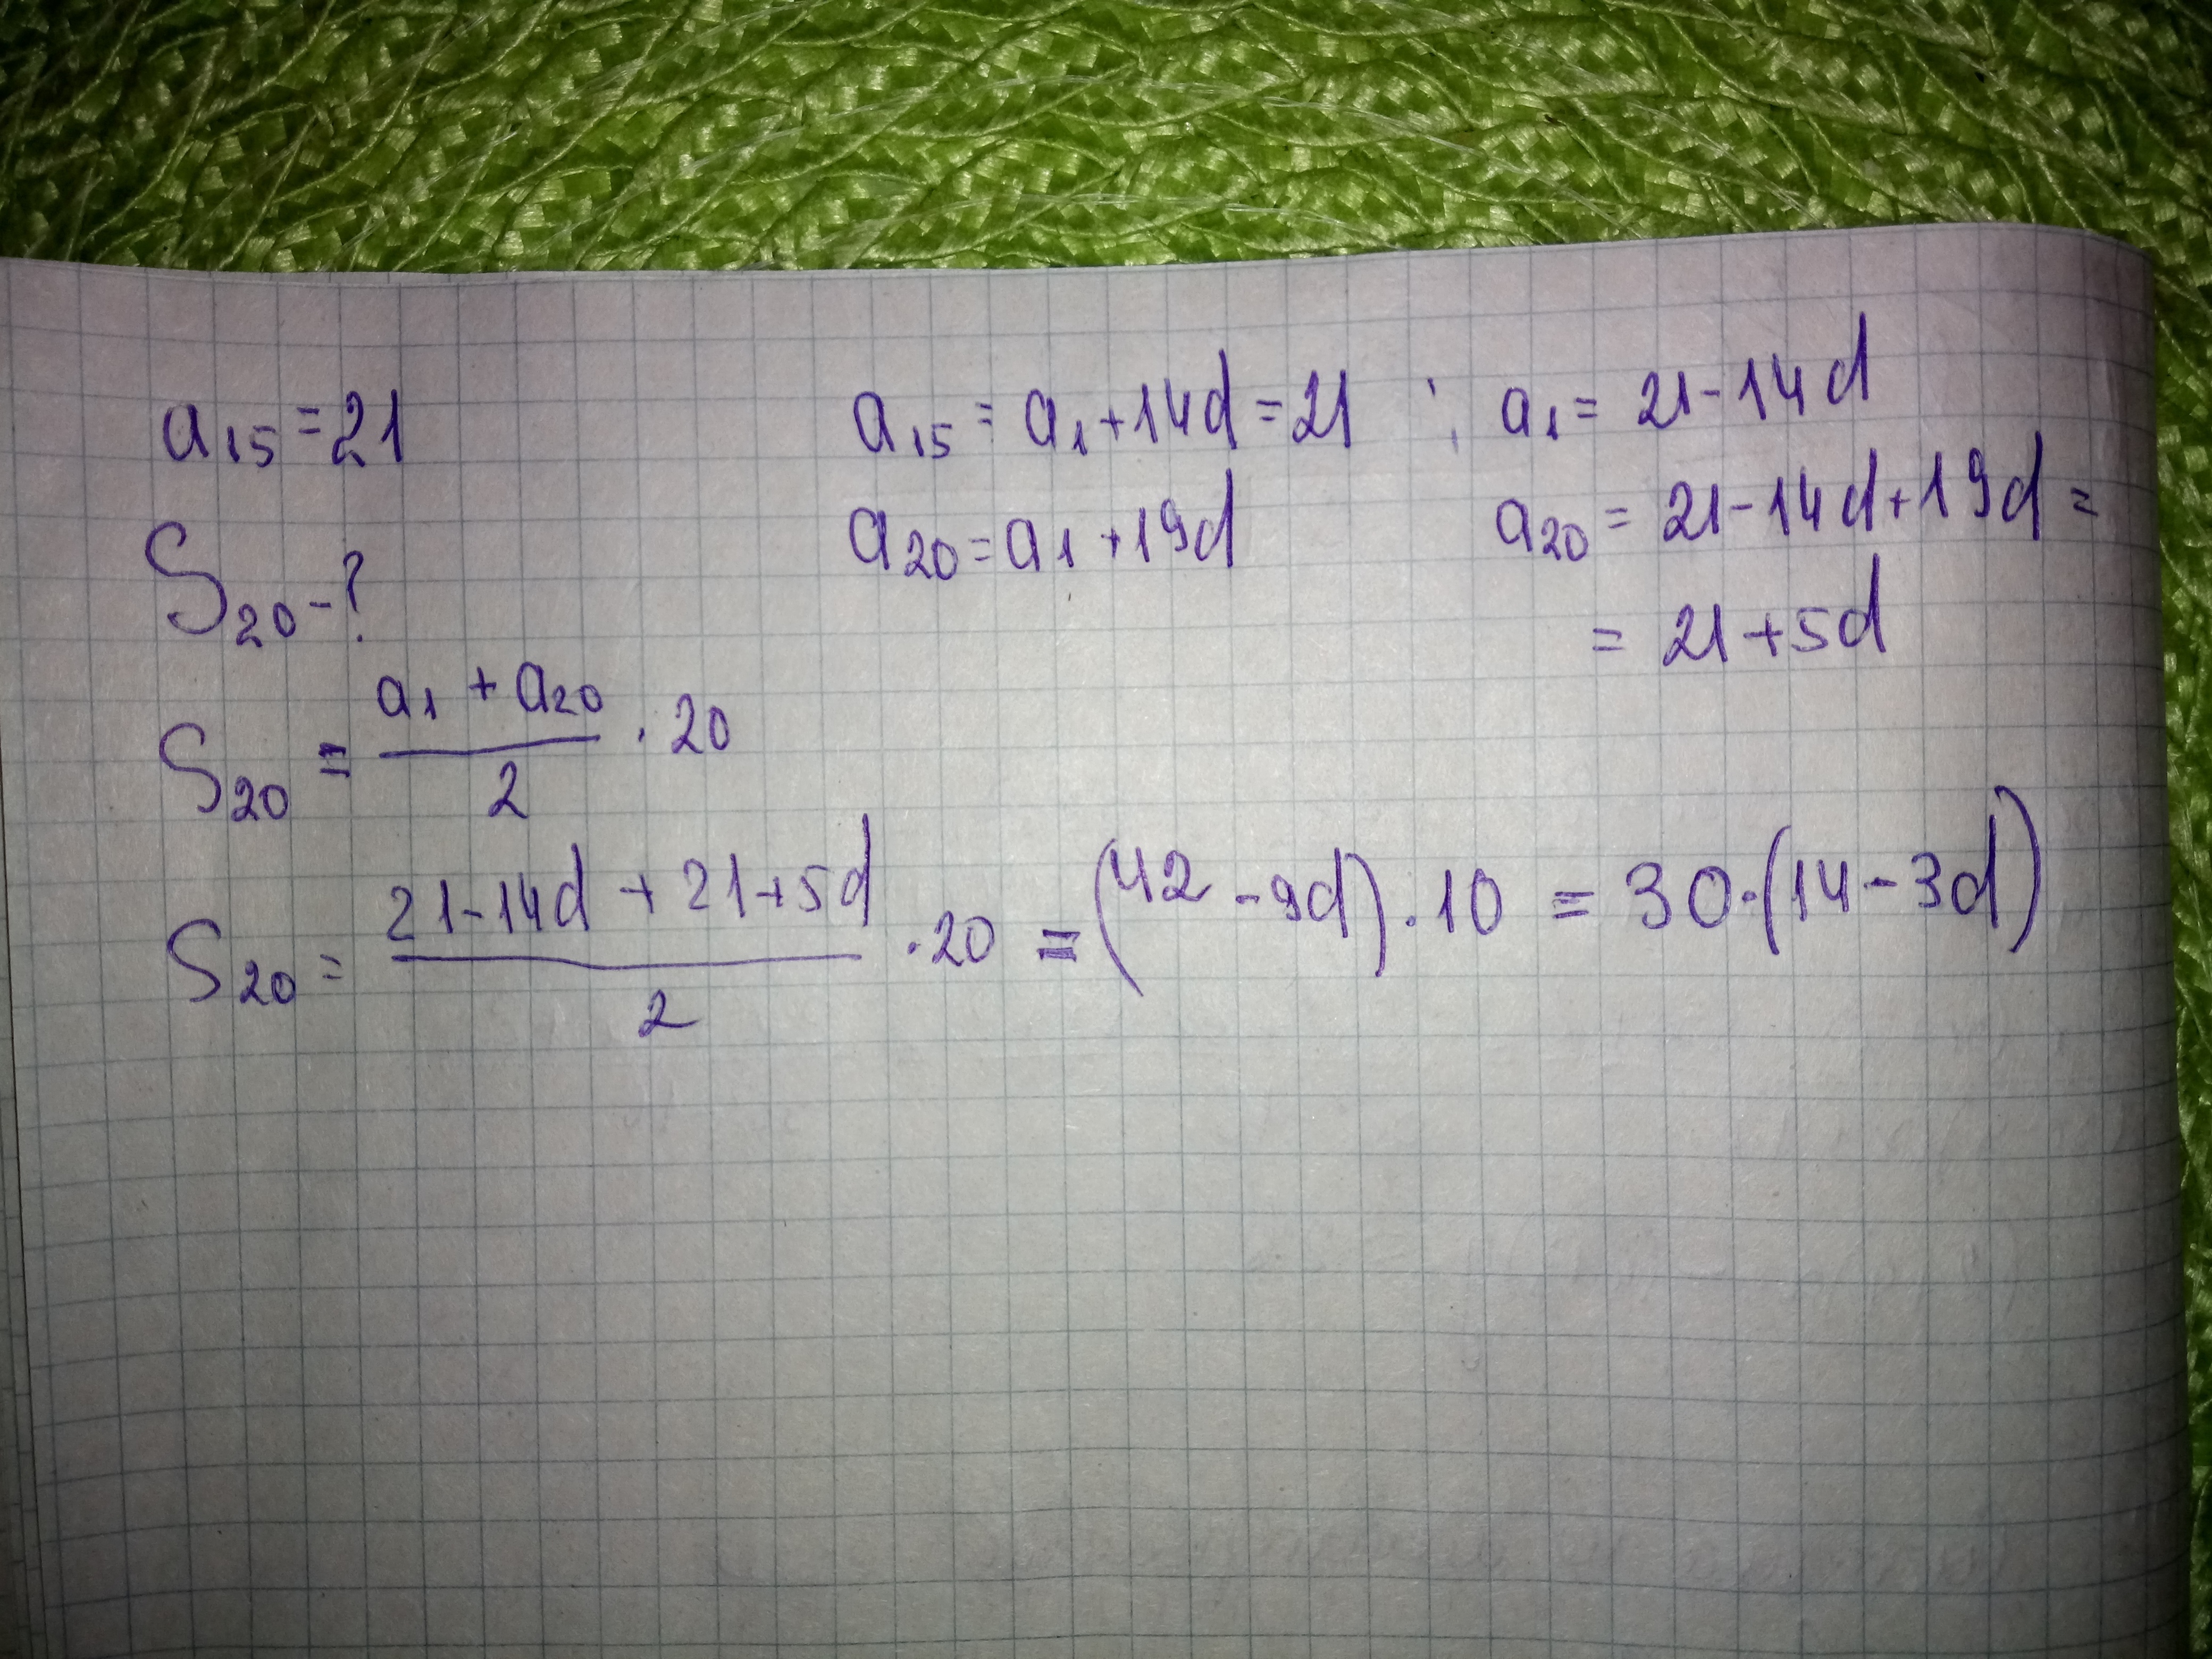 a₁₅ = 21
S₂₀ - ?
a₁₅ = a₁ + 14d = 21 ; a₁ = 21 - 14d
a₂₀ = a₁ + 19d
a₂₀ = 21 - 14d + 19d =
= 21 + 5d
S₂₀ = (a₁ + a₂₀)/2 · 20
S₂₀ = (21 - 14d + 21 + 5d)/2 · 20 = (42 - 9d) · 10 = 30 · (14 - 3d)